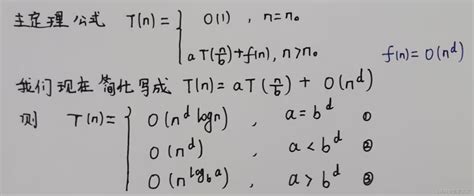 主定理公式 T(n)= { O(1) , n=n₀
aT(n/b)+f(n), n>n₀ f(n)=O(n^d)
我们现在简化写成 T(n)=aT(n/b) + O(n^d)
则 T(n)= { O(n^d logn) , a=b^d ①
O(n^d) , a<b^d ②
O(n^(log_b a)) , a>b^d ③